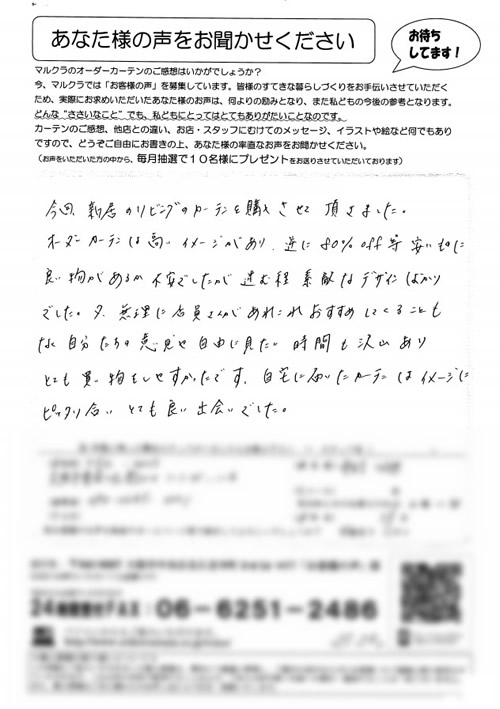 あなた様の声をお聞かせください
お待ち
してます!
マルクラのオーダーカーテンのご感想はいかがでしょうか?
今、マルクラでは「お客様の声」を募集しています。皆様のすてきな暮らしづくりをお手伝いさせていただく
ため、実際にお求めいただいたあなた様のお声は、何よりの励みとなり、また私どもの今後の参考となります。
どんな"ささいなこと"でも、私どもにとってはとてもありがたいことなのです。
カーテンのご感想、他店との違い、お店・スタッフにむけてのメッセージ、イラストや絵など何でもあり
ですので、どうぞご自由にお書きの上、あなた様の率直なお声をお聞かせください。
(お声をいただいた方の中から、毎月抽選で10名様にプレゼントをお送りさせていただいております)
今回、新居のリビングのカーテンを購入させて頂きました。
オーダーカーテンは高いイメージがあり、逆に80%off等安い物に
良い物があるか不安でしたが進む程素敵なデザインばかり
でした。又、無理に店員さんがあれこれおすすめしてくることも
なく自分たちの意見や自由に見たい時間も沢山あり
とても買い物をしやすかったです。自宅に届いたカーテンはイメージに
ピッタリ合いとても良い出会いでした。
24時間受付FAX:06-6251-2486